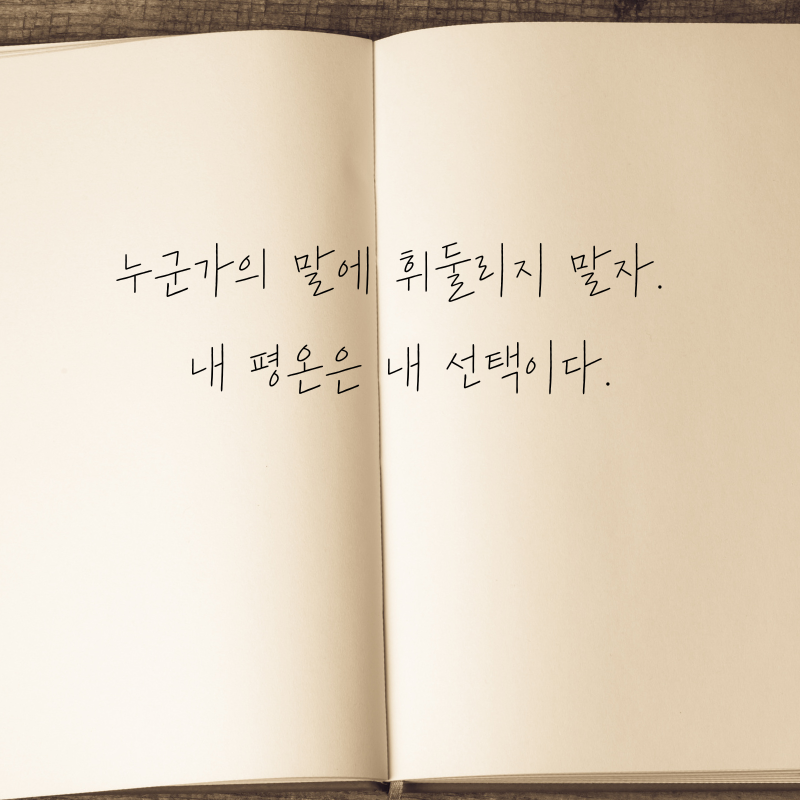 누군가의 말에 휘둘리지 말자.
내 평온은 내 선택이다.